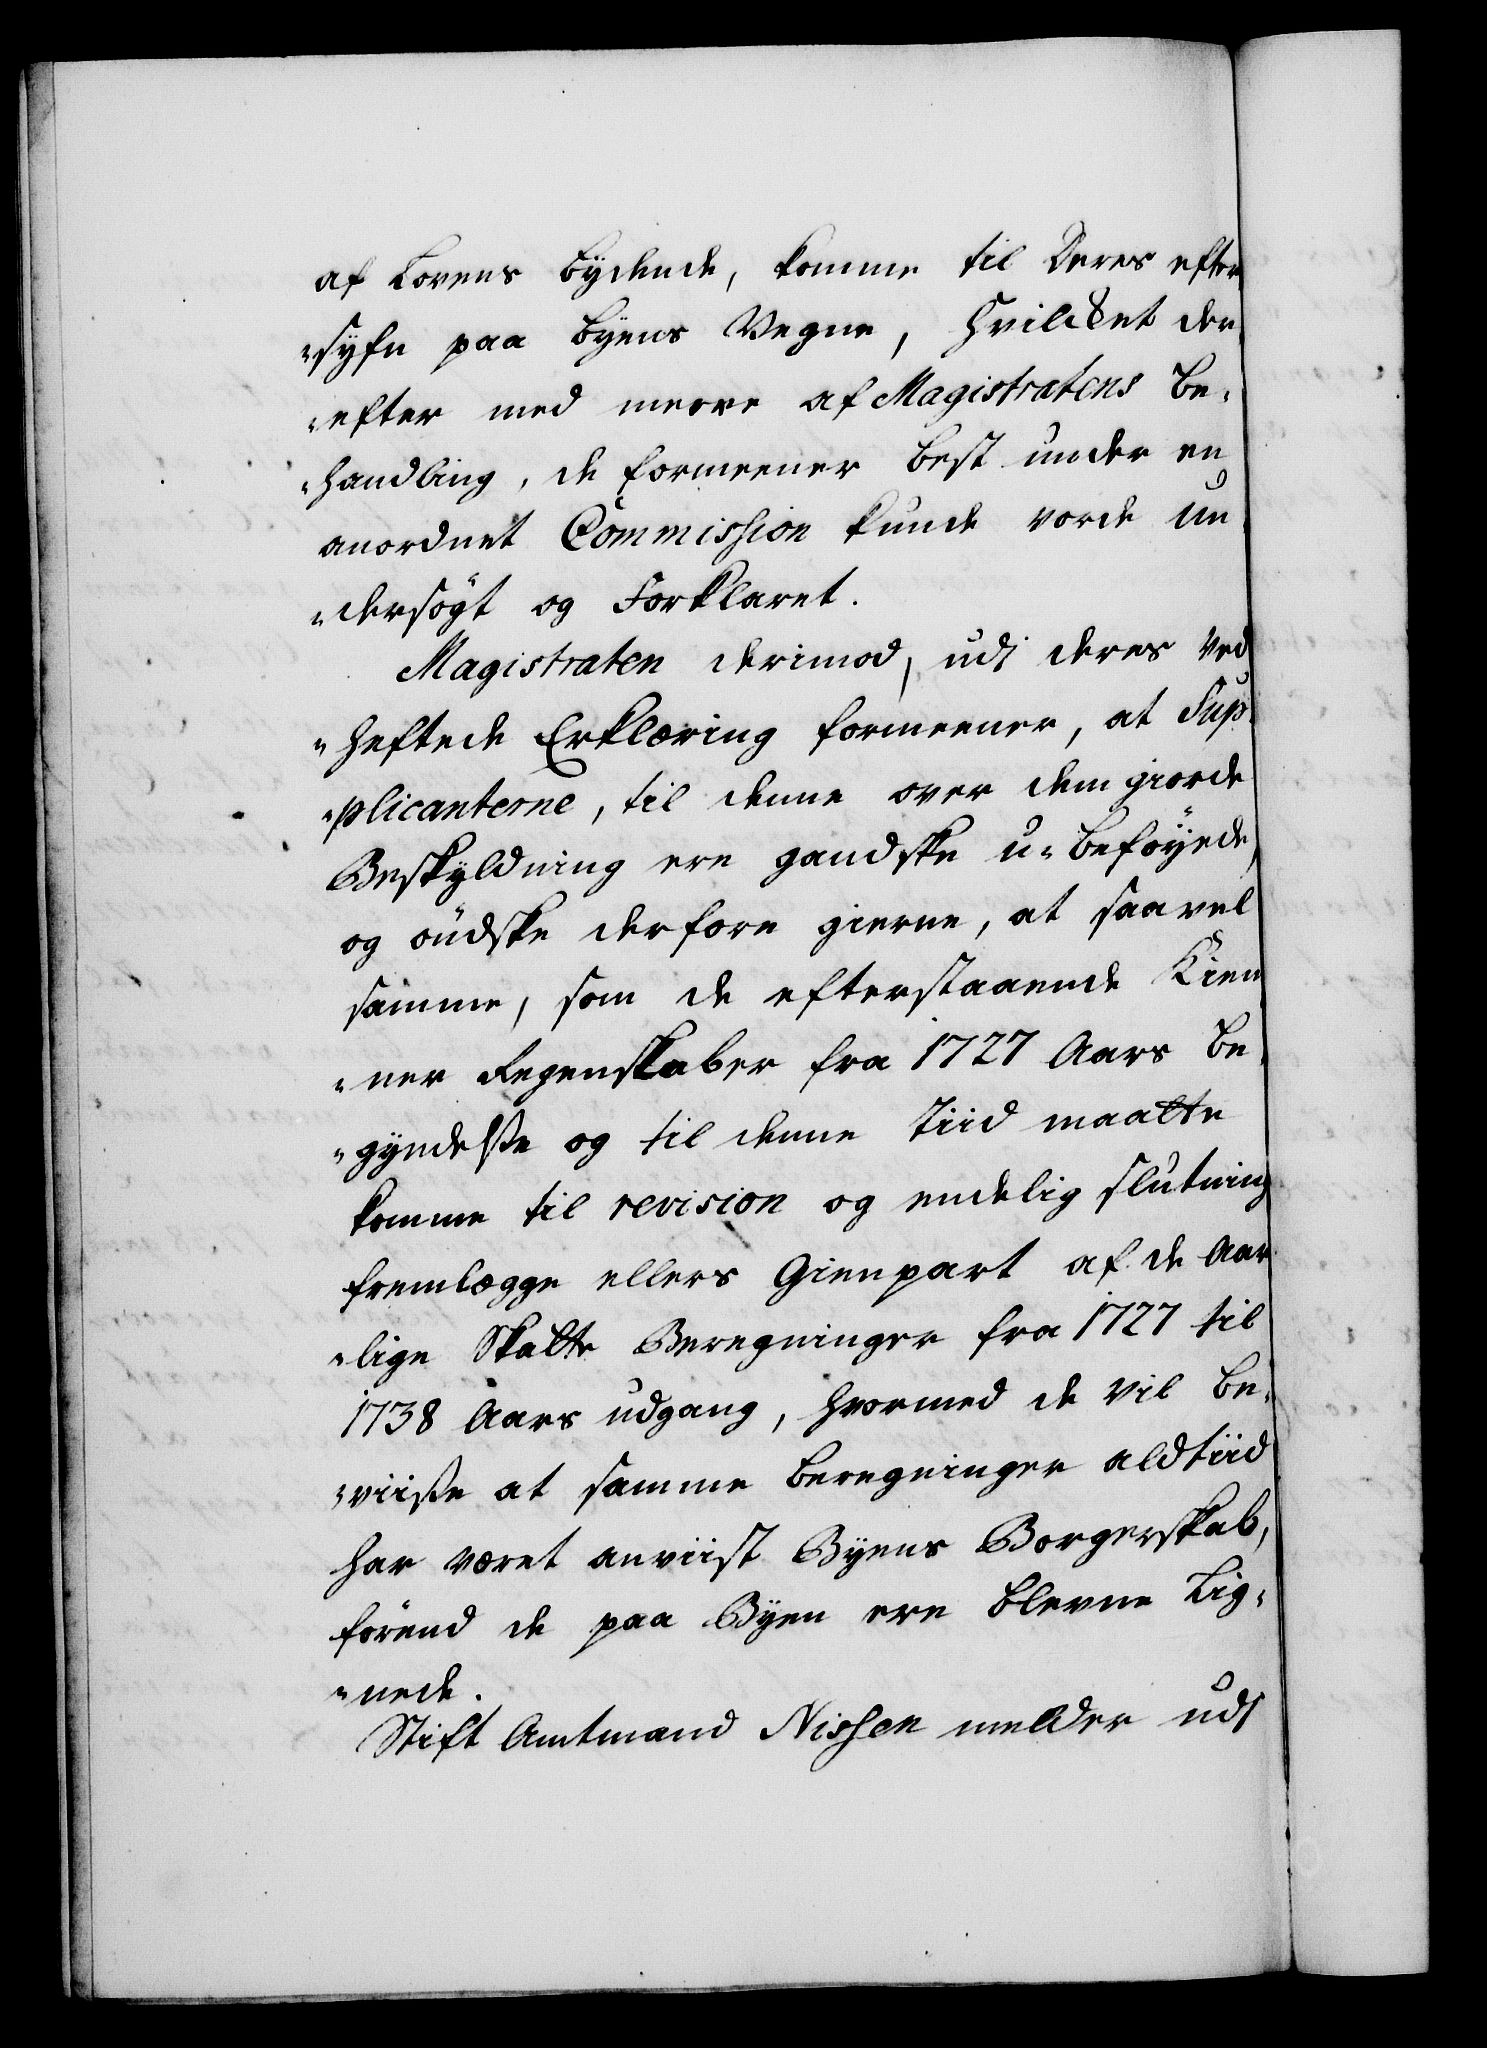 af Lovens bydende, komme til Deres efter
"syfn paa Byens Vegne, hvilcket der
"efter med meere af Magistratens Be-
"handling, de formeener best under en
anordnet Commission kunde vorde un
"dersøgt og Forklaret.
Magistraten derimod, udi deres ved
"heftede Erklæring formeener, at Sup
"plicanterne, til denne over dem giorde
Beskyldning ere gandske u-beföyede,
og öndske derfore gierne, at saavel
samme, som de efterstaaende Kiem
"ner Regenskaber fra 1727 Aars Be-
"gyndelße og til denne Tiid maatte
komme til revision og endelig slutning
fremlægge ellers Gienpart af de Aar
"lige Skatte Beregninger fra 1727 til
1738 Aars udgang, hvormed de vil be-
"viiße at samme beregninger aldtiid
har været anviist Byens Borgerskab,
förend de paa Byen ere blevne Lig-
"nede.
Stift Amtmand Nissen melder udi